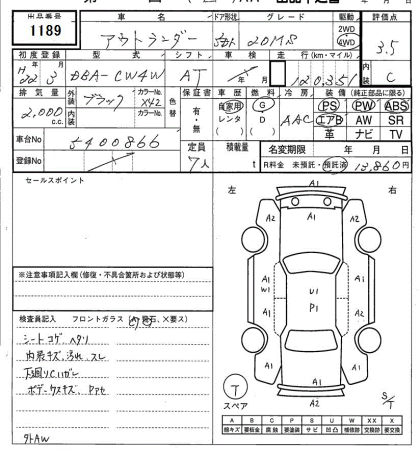 出品番号 車名 ドア形状 グレード 駆動 評価点
1189 アウトランダー 5ドア 20MS 2WD 4WD 3.5
初度登録 型式 シフト 車検 走行(km・マイル) 内装
H22.3 DBA-CW4W AT 120,351 C
排気量 外装 ブラック カラーNo. X42 色替 保証書 車歴 燃料 冷房 装備(純正部品に限る)
2,000 c.c. 内装 カラーNo. 有・無 自家用 レンタ G D AAC PS PW ABS
エアB AW SR
革 ナビ TV
車台No 5400866 定員 7人 積載量 t 名変期限 年 月 日
登録No R料金 未預託・預託済 13,860円
セールスポイント
左 右
A1
A1
A2 A2
A1 W1 A1 U1 P1 A1 A1
A1
A2
※注意事項記入欄(修復・不具合箇所および状態等)
検査員記入 フロントガラス(A飛石、X要ス)
シートコゲ、ヘタリ
内装キズ、汚れ、スレ
下廻りCハガレ
ボデーウスキズ、
外AW
T
スペア
S/T
A B C P S U W XX X
線キズ 要板金 腐蝕 要塗装 サビ 凹凸 補修跡 交換跡 要交換